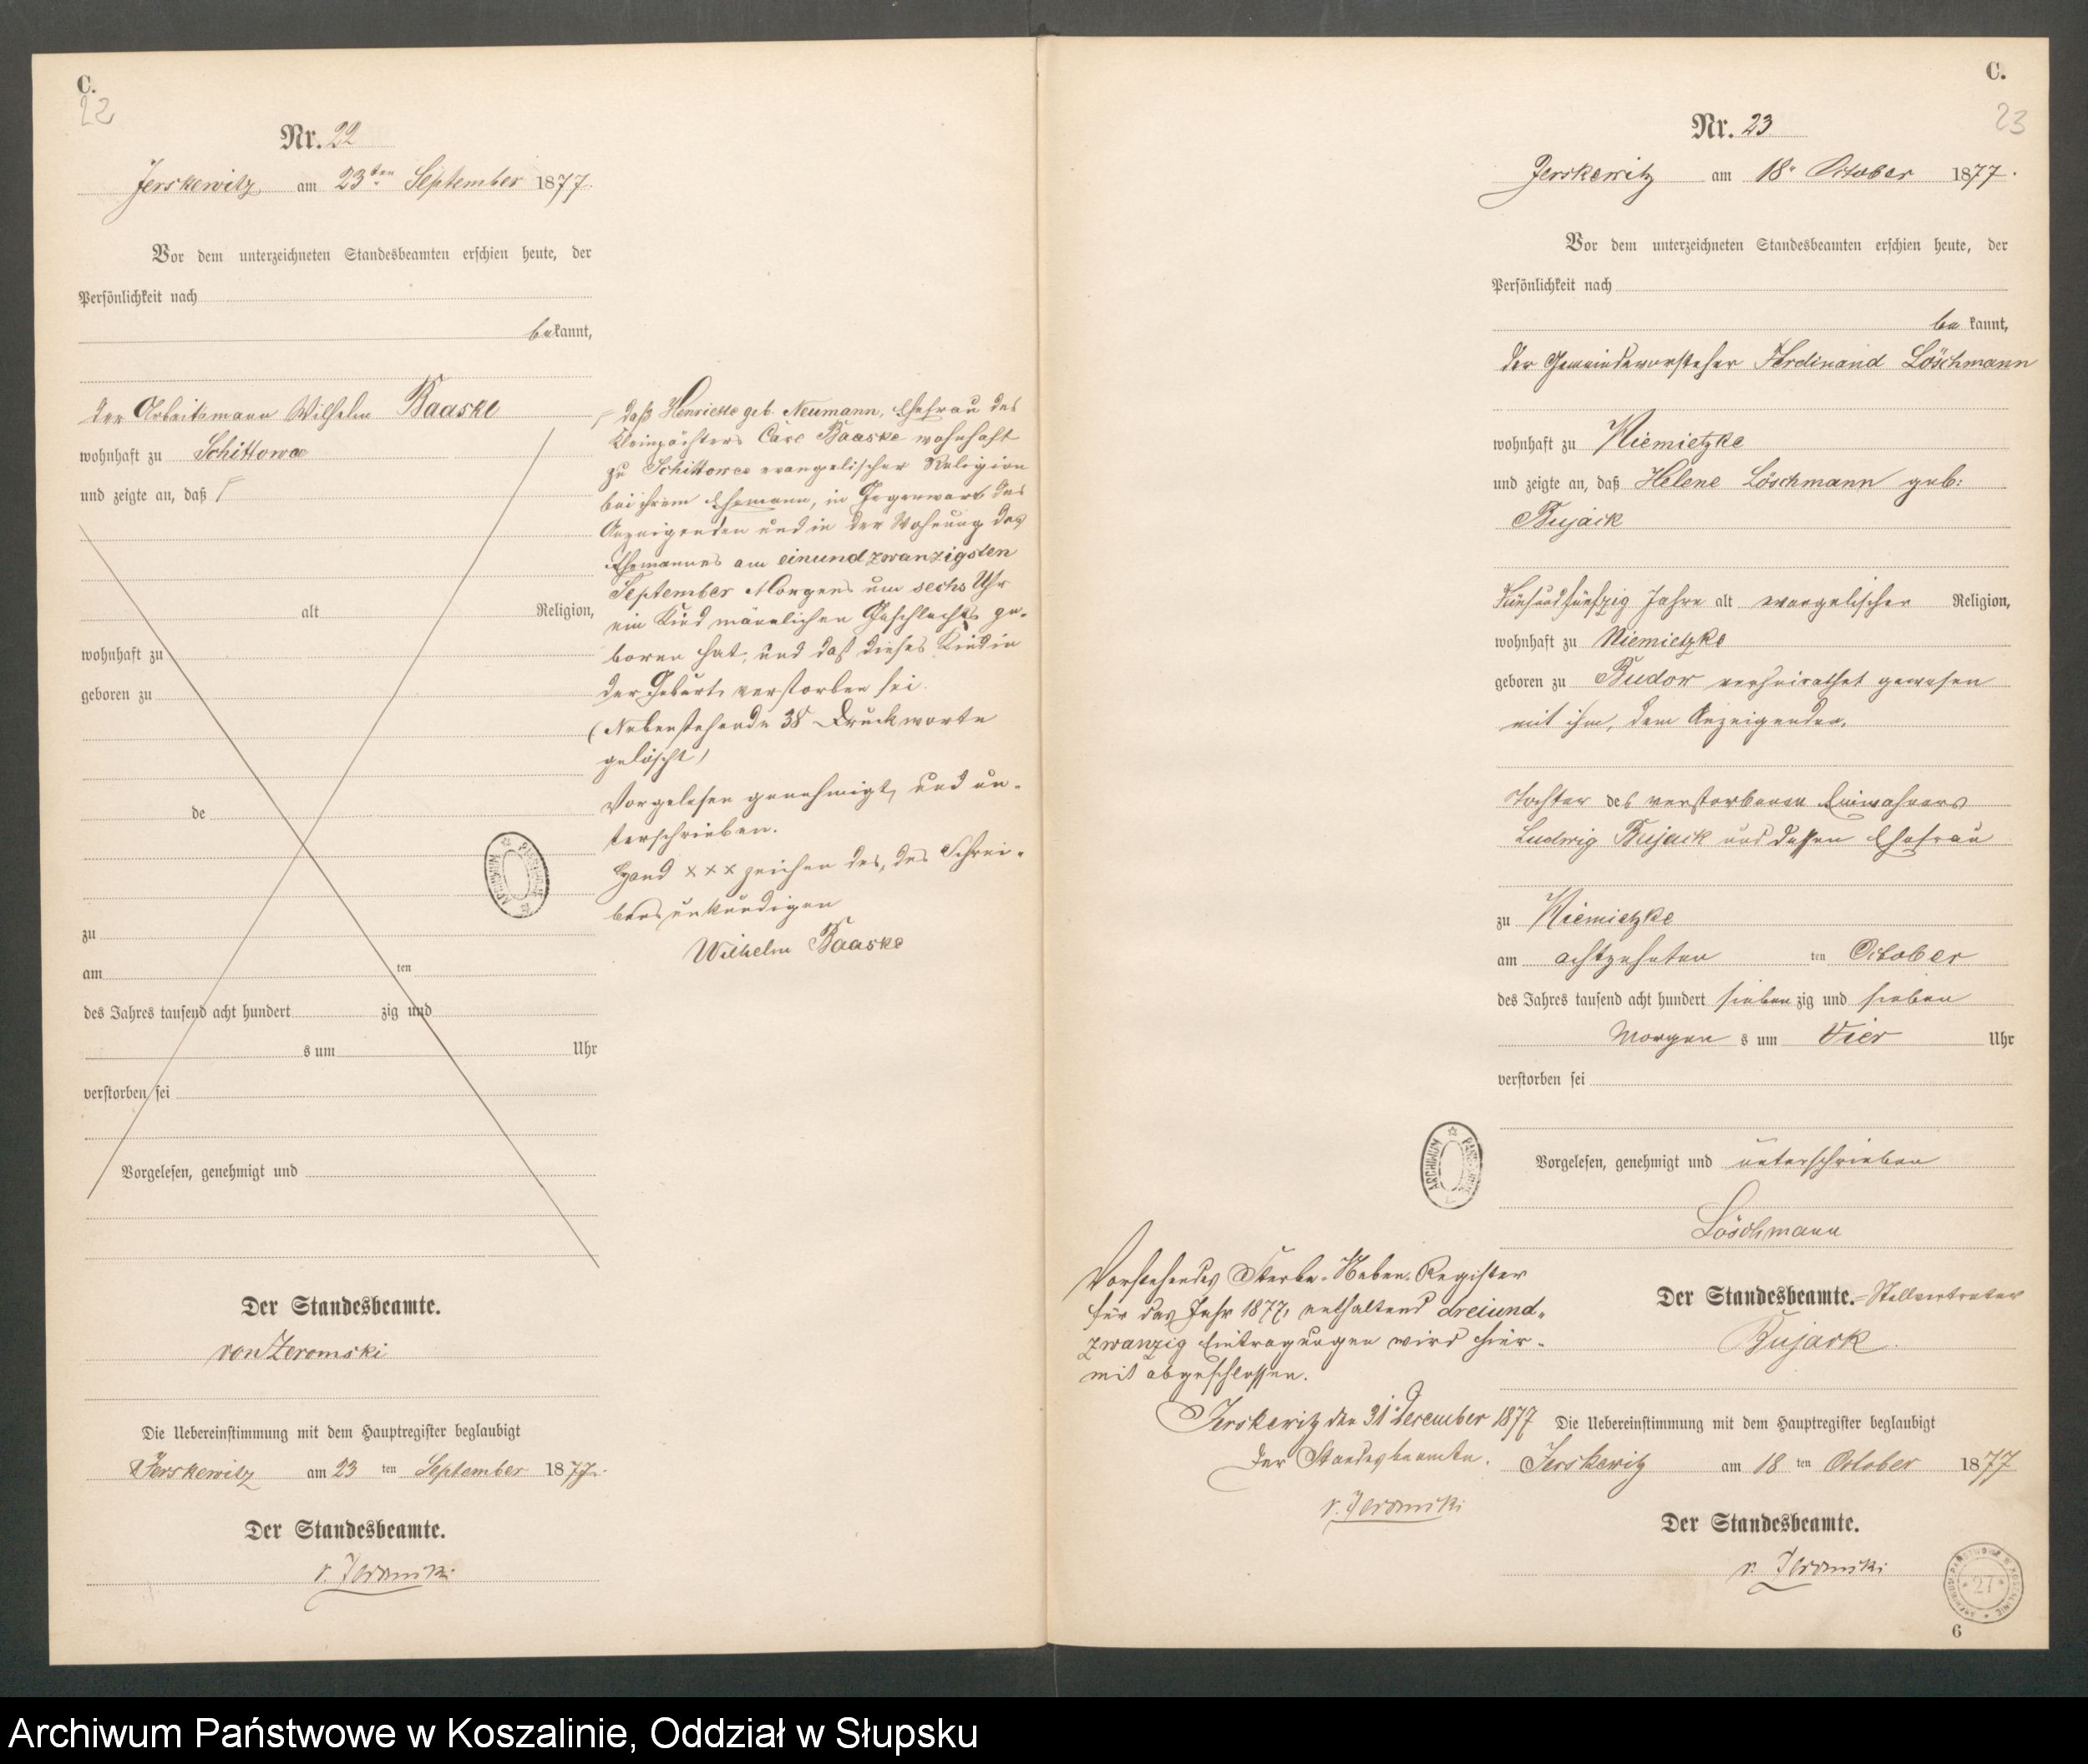 C.
22
Nr. 22
Jerskewitz am 23ten September 1877.
Vor dem unterzeichneten Standesbeamten erschien heute, der
Persönlichkeit nach
bekannt,
der Arbeitsmann Wilhelm Baaske
wohnhaft zu Schittowa
und zeigte an, daß
alt Religion,
wohnhaft zu
geboren zu
de
zu
am ten
des Jahres tausend acht hundert zig und
s um Uhr
verstorben sei
Vorgelesen, genehmigt und
Der Standesbeamte.
von Zeromski
Die Uebereinstimmung mit dem Hauptregister beglaubigt
Jerskewitz am 23 ten September 1877.
Der Standesbeamte.
v. Zeromski
daß Henriette geb. Neumann, Ehefrau des
Kleinpächters Carl Baaske wohnhaft
zu Schittowa evangelischer Religion
bei ihrem Ehemann, in Gegenwart des
Anzeigenden und in der Wohnung des
Ehemannes am einundzwanzigsten
September Morgens um sechs Uhr
ein Kind männlichen Geschlechts ge-
boren hat, und daß dieses Kind in
der Geburt verstorben sei.
(Nebenstehende 38 Druckworte
gelöscht)
Vorgelesen genehmigt, und un-
terschrieben.
Hand xxx zeichen des, des Schrei-
bens unkundigen
Wilhelm Baaske
ARCHIWUM PAŃSTWOWE
C.
23
Nr. 23
Jerskewitz am 18. October 1877.
Vor dem unterzeichneten Standesbeamten erschien heute, der
Persönlichkeit nach
be kannt,
der Gemeindevorsteher Ferdinand Löschmann
wohnhaft zu Niemietzke
und zeigte an, daß Helene Löschmann geb:
Bujack
Fünfundfünfzig Jahre alt evangelischer Religion,
wohnhaft zu Niemietzke
geboren zu Budow verheirathet gewesen
mit ihm, dem Anzeigenden,
Tochter des verstorbenen Einwohners
Ludwig Bujack und dessen Ehefrau
zu Niemietzke
am achtzehnten ten October
des Jahres tausend acht hundert sieben zig und sieben
Morgen s um Vier Uhr
verstorben sei
Vorgelesen, genehmigt und unterschrieben
Löschmann
Der Standesbeamte.-Stellvertreter
Bujack.
Die Uebereinstimmung mit dem Hauptregister beglaubigt
Jerskewitz am 18 ten October 1877
Der Standesbeamte.
v. Zeromski
Vorstehendes Sterbe-Neben-Register
für das Jahr 1877, enthaltend dreiund-
zwanzig Eintragungen wird hier-
mit abgeschlossen.
Jerskewitz den 31. December 1877
Der Standesbeamte.
v. Zeromski
ARCHIWUM PAŃSTWOWE
ARCHIWUM PAŃSTWOWE W KOSZALINIE
27
6
Archiwum Państwowe w Koszalinie, Oddział w Słupsku